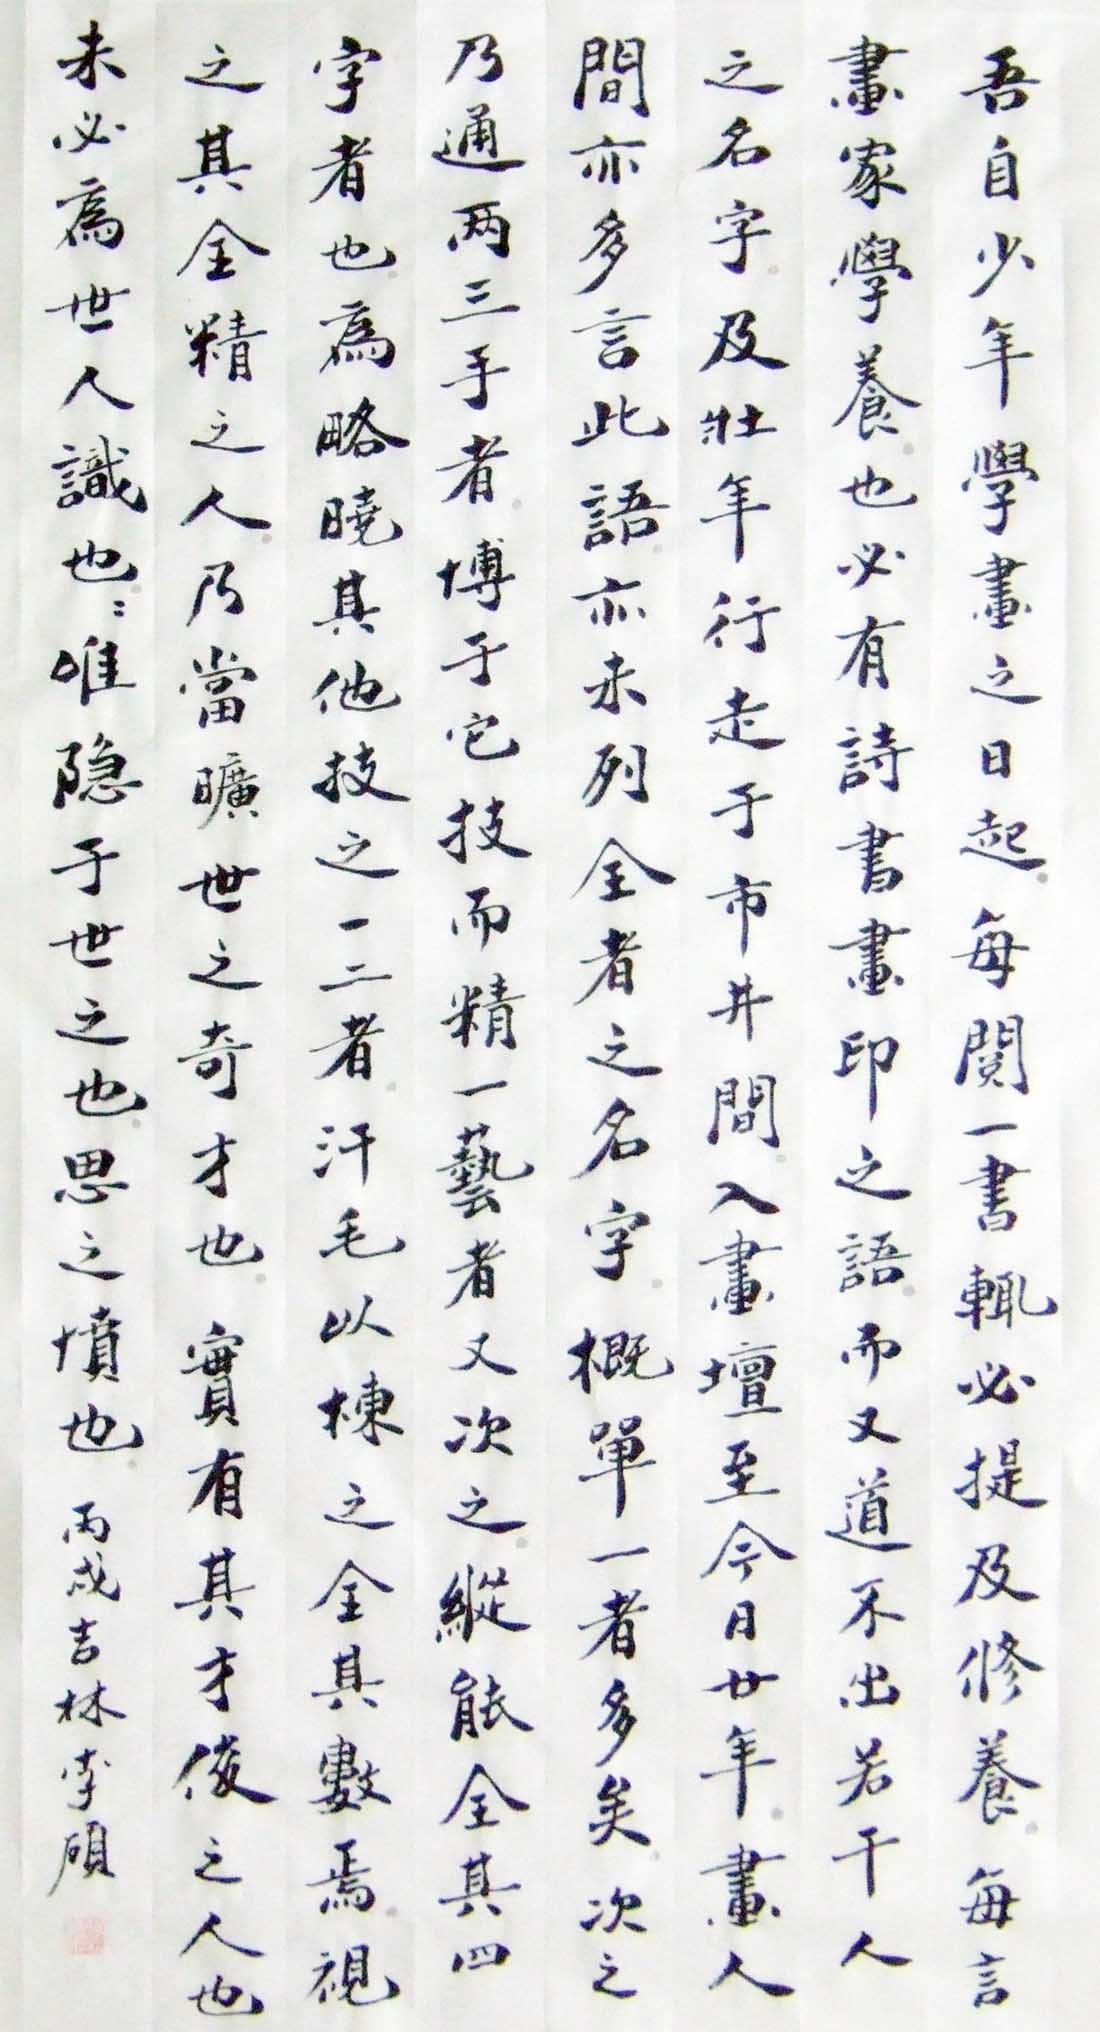 吾自少年學畫之日起每閱一書輒必提及修養每言
畫家學養也必有詩書畫印之語而又道不出若干人
之名字及壯年行走于市井間入畫壇至今日廿年畫人
間亦多言此語亦未列全者之名字概單一者多矣次之
乃通两三手者博于它技而精一藝者又次之縱能全其四
字者也為略曉其他技之一二者汗毛以棟之全其數焉視
之其全精之人乃當曠世之奇才也實有其才俊之人也
未必為世人識也〻唯隐于世之也思之墳也
丙戌吉林李碩